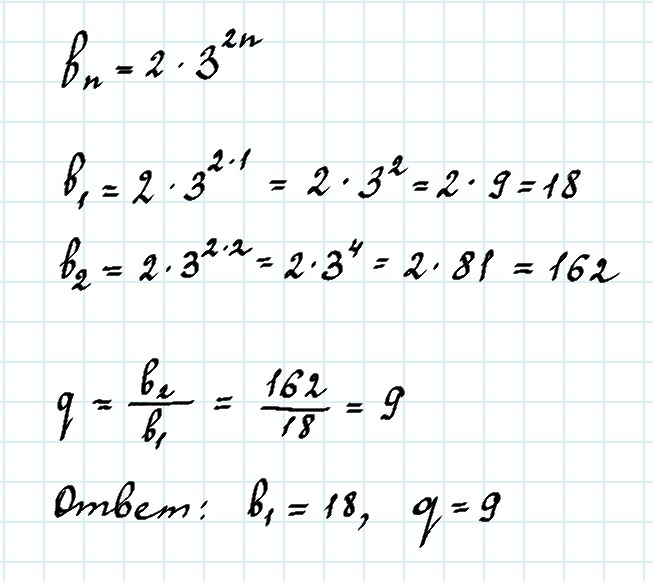 bₙ = 2 · 3²ⁿ
b₁ = 2 · 3²·¹ = 2 · 3² = 2 · 9 = 18
b₂ = 2 · 3²·² = 2 · 3⁴ = 2 · 81 = 162
q = b₂/b₁ = 162/18 = 9
Ответ: b₁ = 18, q = 9